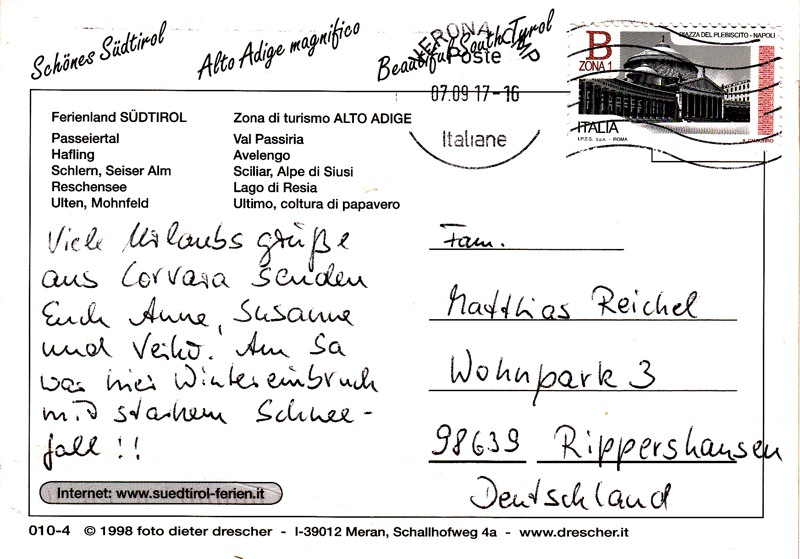 Schönes Südtirol
Alto Adige magnifico
Beautiful South Tyrol
VERONA CMP
Poste
07.09 17-16
Italiane
B
ZONA 1
PIAZZA DEL PLEBISCITO - NAPOLI
ITALIA
I.P.Z.S. S.p.A. - ROMA
Ferienland SÜDTIROL
Passeiertal
Hafling
Schlern, Seiser Alm
Reschensee
Ulten, Mohnfeld
Zona di turismo ALTO ADIGE
Val Passiria
Avelengo
Sciliar, Alpe di Siusi
Lago di Resia
Ultimo, coltura di papavero
Viele Urlaubsgrüße
aus Corvara senden
Euch Anne, Susanne
und Veiko. Am Sa
war hier Wintereinbruch
mit starkem Schnee-
fall !!
Fam.
Matthias Reichel
Wohnpark 3
98639 Rippershausen
Deutschland
Internet: www.suedtirol-ferien.it
010-4 © 1998 foto dieter drescher - I-39012 Meran, Schallhofweg 4a - www.drescher.it